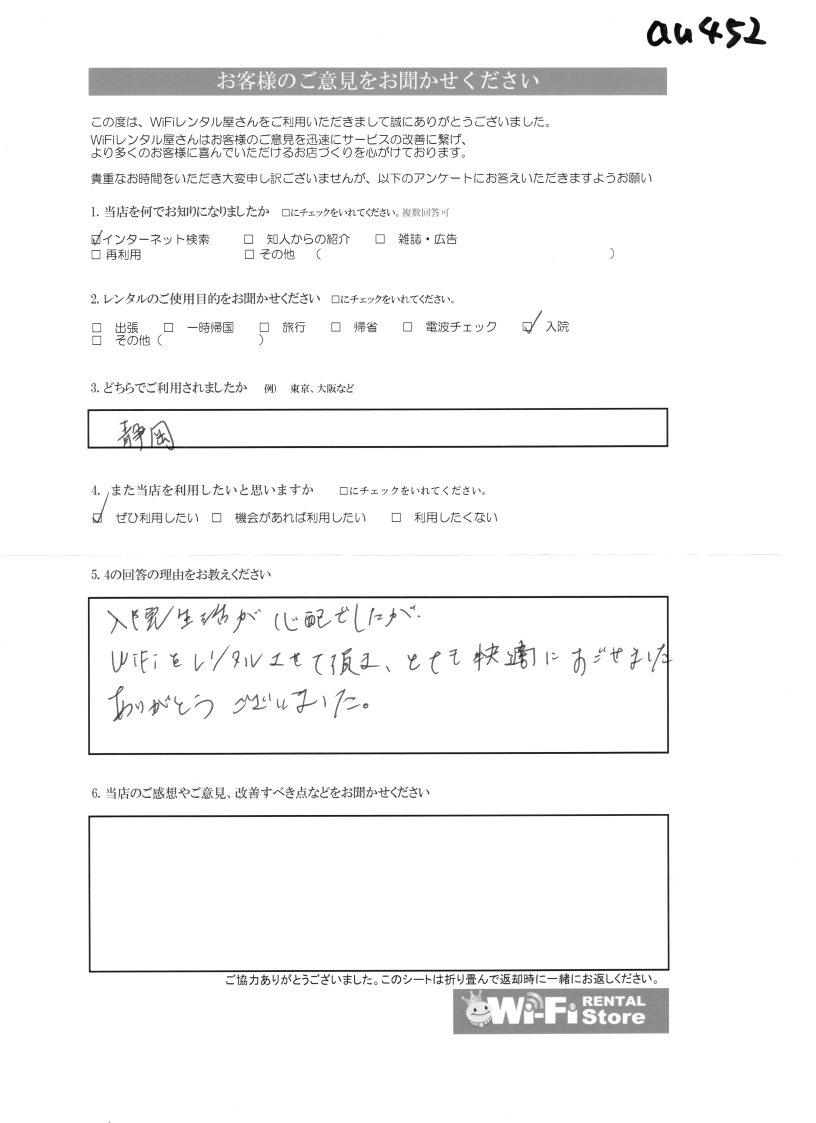 au452
お客様のご意見をお聞かせください
この度は、WiFiレンタル屋さんをご利用いただきまして誠にありがとうございました。
WiFiレンタル屋さんはお客様のご意見を迅速にサービスの改善に繋げ、
より多くのお客様に喜んでいただけるお店づくりを心がけております。
貴重なお時間をいただき大変申し訳ございませんが、以下のアンケートにお答えいただきますようお願い
1. 当店を何でお知りになりましたか □にチェックをいれてください。複数回答可
☑インターネット検索 □ 知人からの紹介 □ 雑誌・広告
□ 再利用 □ その他 ( )
2. レンタルのご使用目的をお聞かせください □にチェックをいれてください。
□ 出張 □ 一時帰国 □ 旅行 □ 帰省 □ 電波チェック ☑ 入院
□ その他 ( )
3. どちらでご利用されましたか 例) 東京、大阪など
静岡
4. また当店を利用したいと思いますか □にチェックをいれてください。
☑ ぜひ利用したい □ 機会があれば利用したい □ 利用したくない
5. 4の回答の理由をお教えください
入院生活が心配でしたが.
WiFiをレンタルさせて頂き、とても快適にすごせました
ありがとうございました。
6. 当店のご感想やご意見、改善すべき点などをお聞かせください
ご協力ありがとうございました。このシートは折り畳んで返却時に一緒にお返しください。
Wi-Fi RENTAL Store